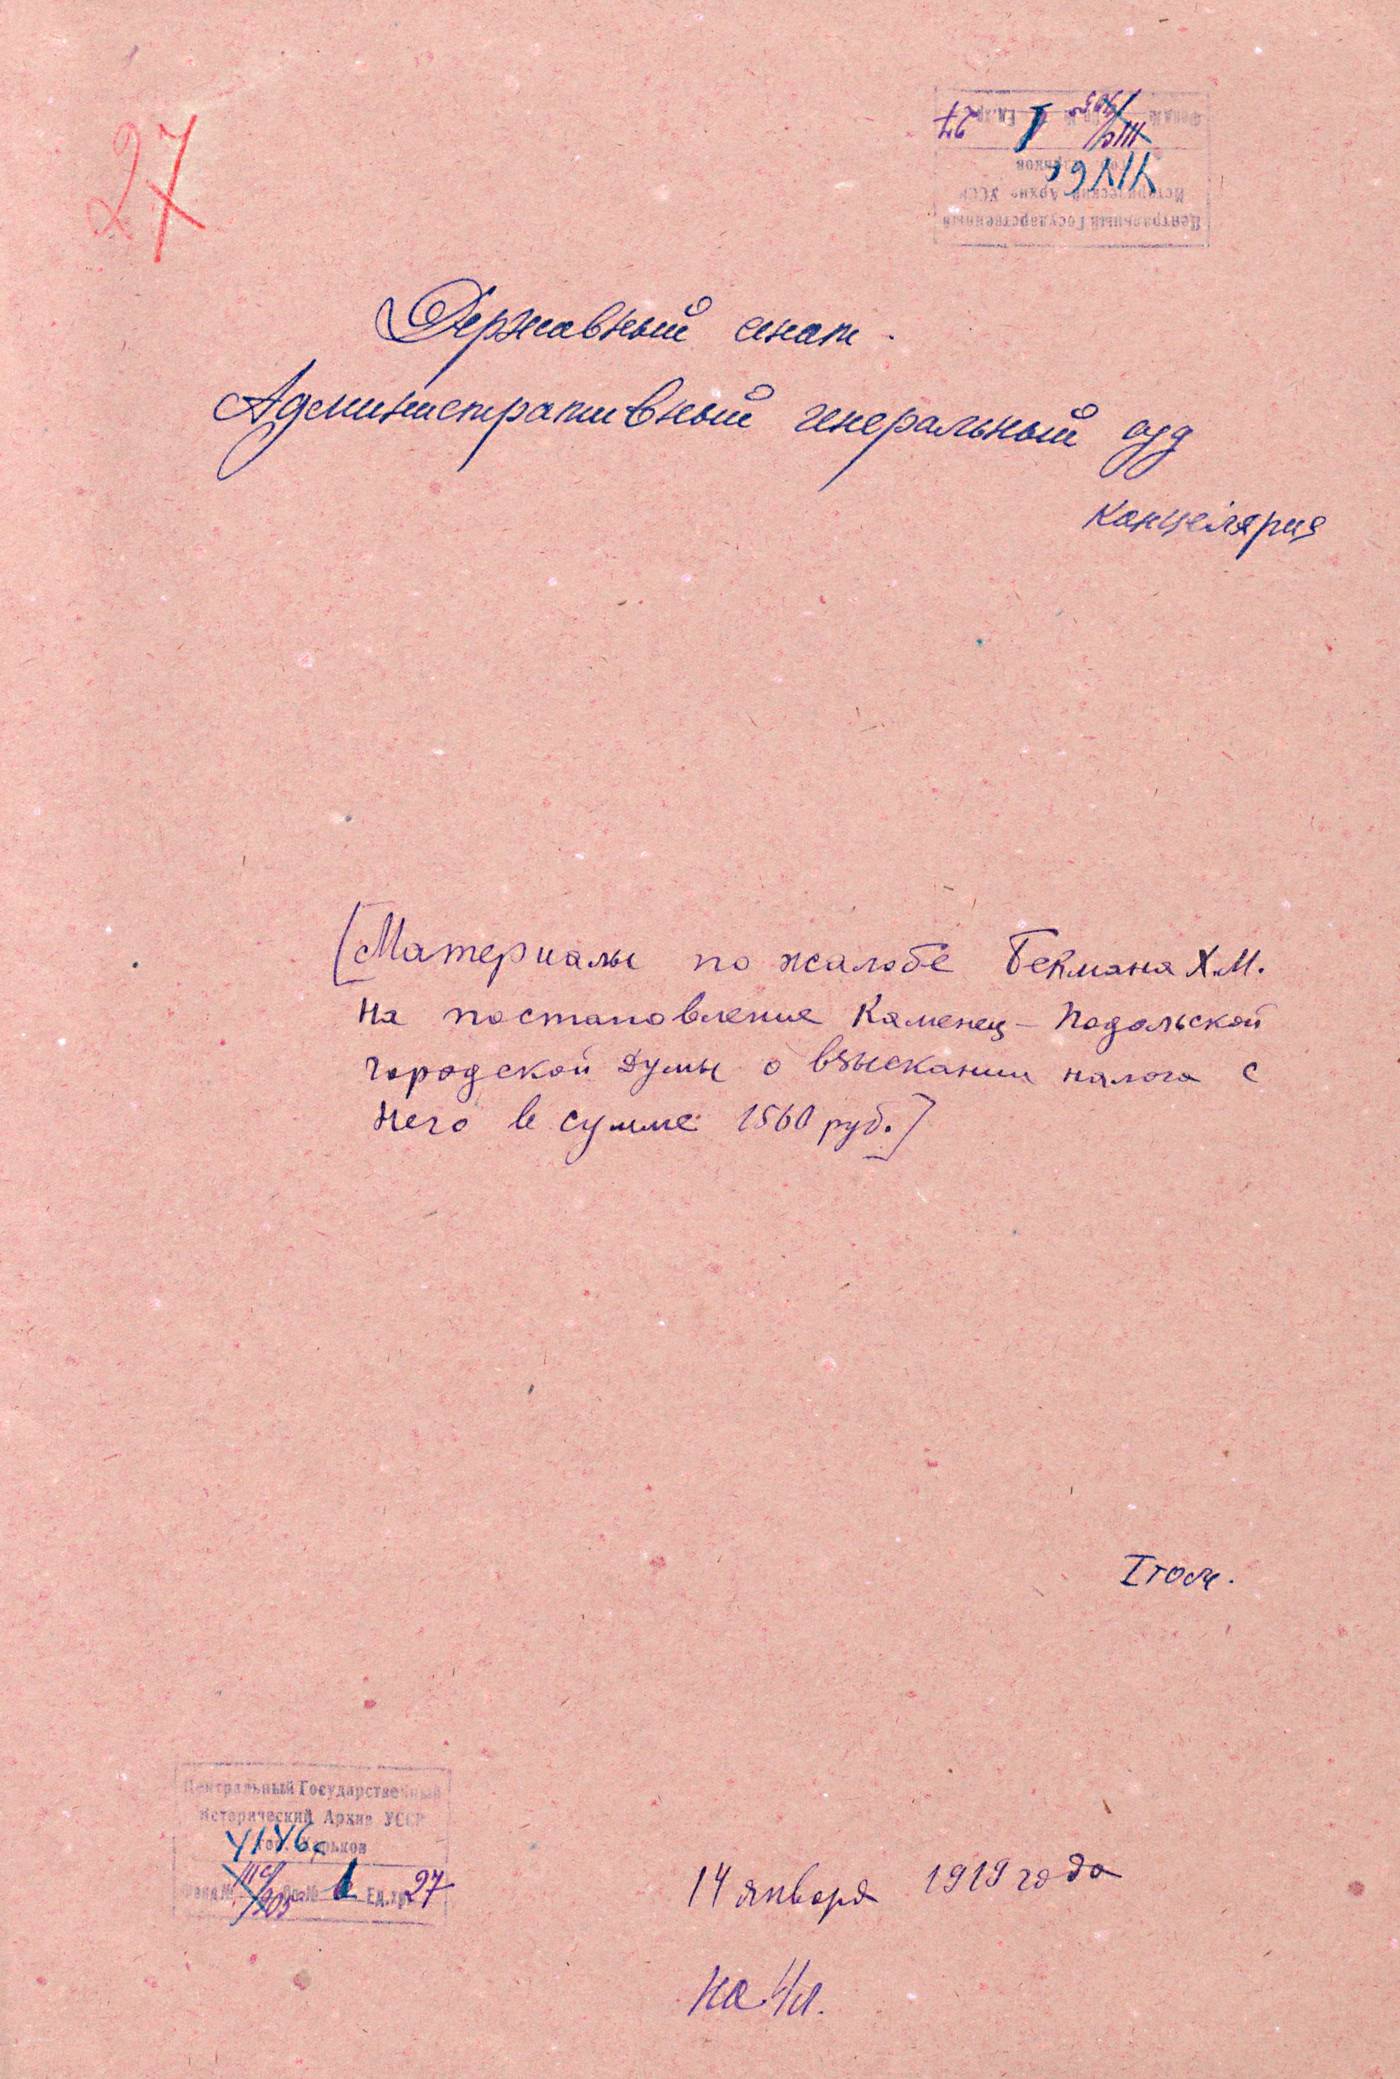 27
Центральный Государственный
Исторический Архив УССР
гор. Харьков
Фонд № Оп. № 1 Ед. хр. 27
Державный сенат.
Административный генеральный суд
Канцелярия
[Материалы по жалобе Бекмана Х.М.
на постановление Каменец-Подольской
городской думы о взыскании налога с
него в сумме 1560 руб.]
I том.
Центральный Государственный
Исторический Архив УССР
гор. Харьков
Фонд № Оп. № 1 Ед. хр. 27
14 января 1919 года
на 4 л.